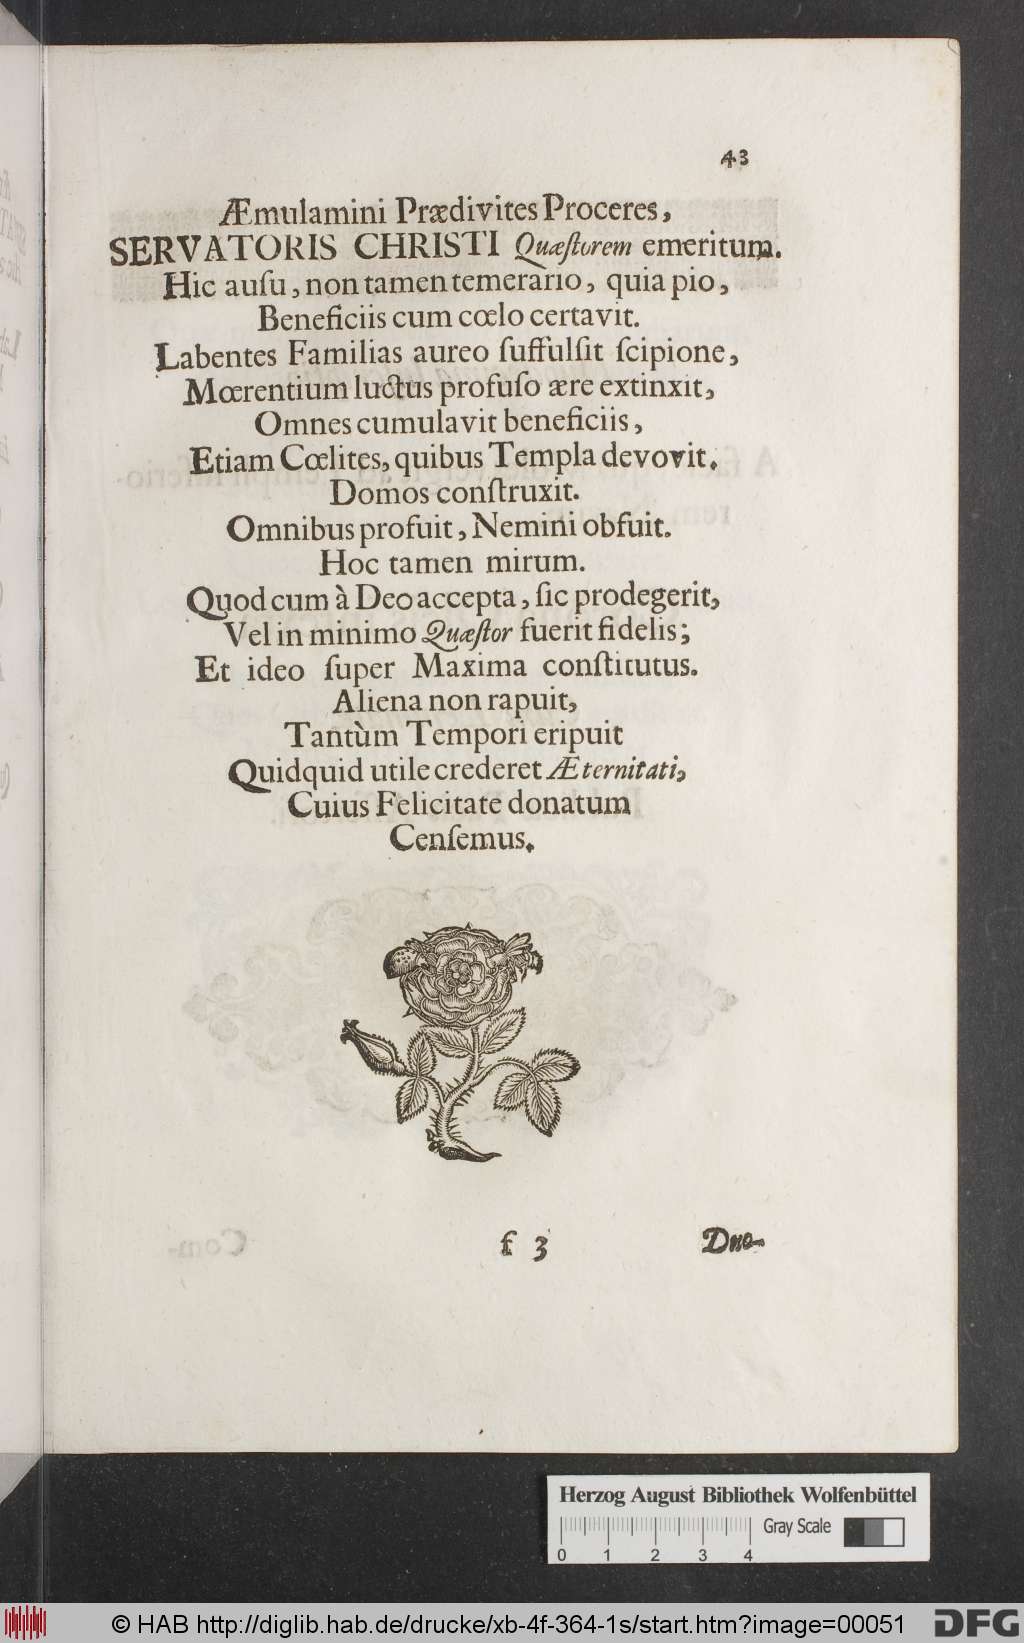 43
Æmulamini Prædivites Proceres,
SERVATORIS CHRISTI Quæſtorem emeritum.
Hic auſu, non tamen temerario, quia pio,
Beneficiis cum cœlo certavit.
Labentes Familias aureo ſuffulſit ſcipione,
Mœrentium luctus profuſo ære extinxit,
Omnes cumulavit beneficiis,
Etiam Cœlites, quibus Templa devovit.
Domos conſtruxit.
Omnibus profuit, Nemini obfuit.
Hoc tamen mirum.
Quod cum à Deo accepta, ſic prodegerit,
Vel in minimo Quæſtor fuerit fidelis;
Et ideo ſuper Maxima conſtitutus.
Aliena non rapuit,
Tantùm Tempori eripuit
Quidquid utile crederet Æternitati,
Cuius Felicitate donatum
Cenſemus.
f 3
Duo-
Herzog August Bibliothek Wolfenbüttel
Gray Scale
0 1 2 3 4
© HAB http://diglib.hab.de/drucke/xb-4f-364-1s/start.htm?image=00051
DFG